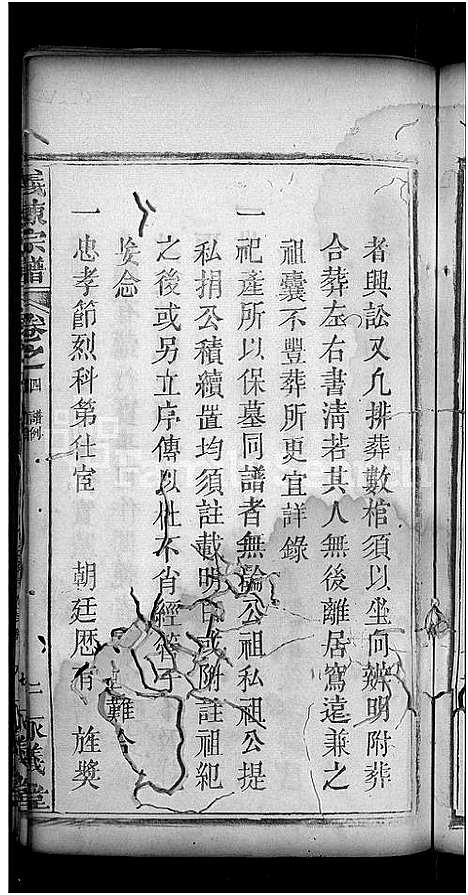 者興訟又凡排葬數棺須以坐向辨明附葬
合葬左右書淸若其人無後離居窵遠兼之
祖囊不豐葬所更宜詳錄
一祀產所以保墓同譜者無論公祖私祖公提
私捐公積續置均須註載明白或附註祖紀
之後或另立序傳以杜不肖經管子
妄念
一忠孝節烈科第仕宦　朝廷歷有　旌獎
義陳宗譜
卷之四
譜例
義堂